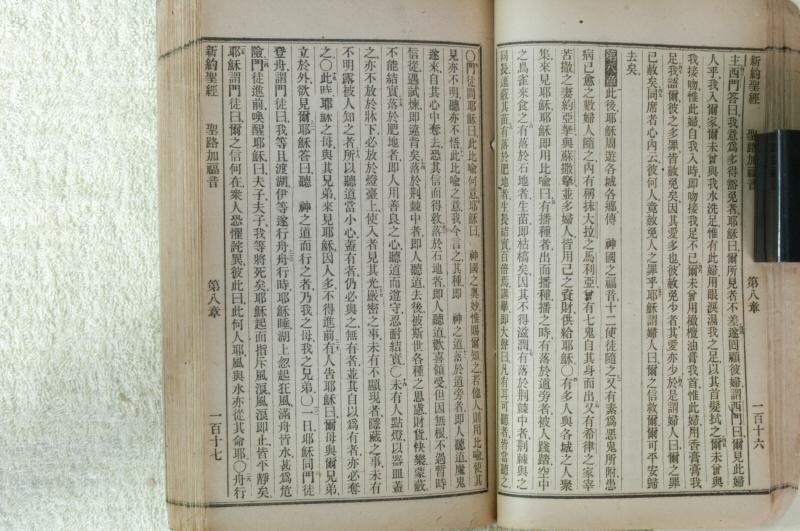 新約聖經 聖路加福音 第八章 一百十六
主西門答曰我意爲多得豁免者耶穌曰爾所見者不差遂回顧彼婦謂西門曰爾見此婦
人乎我入爾家爾未曾與我水洗足惟有此婦用眼淚濕我之足以其首髮拭之爾未曾與
我接吻惟此婦自我入時即吻接我足不已爾未曾用橄欖油膏我首惟此婦用香膏膏我
足我語爾彼之多罪皆赦免矣因其愛多也彼赦免少者其愛亦少於是謂婦人曰爾之罪
已赦矣同席者心內云彼何人竟赦免人之罪乎耶穌謂婦人曰爾之信救爾爾可平安歸
去矣
第八章此後耶穌周遊各城各鄉傳 神國之福音十二使徒隨之又有素爲惡鬼所附患
病已愈之數婦人隨之內有稱抹大拉之馬利亞曾有七鬼自其身而出又有希律之家宰
苦撒之妻約亞拏與蘇撒拏並多婦人皆用己之資財供給耶穌〇有多人與各城之人聚
集來見耶穌耶穌即用比喻曰有播種者出而播種播之時有落於道旁者被人踐踏空中
之鳥雀來食之有落於石地者生苗即枯槁矣因其不得滋潤有落於荊棘中者荊棘與之
同長遂蔽其苗有落於肥地者生長結實百倍焉講畢即大聲曰凡有耳可聽者亦當聽之
〇門徒問耶穌曰此比喻何意耶穌曰 神國之奧妙惟賜爾知之若他人則用比喻使其
見亦不明聽亦不悟此比喻之意我今言之其種即 神之道落於道旁者即人聽道魔鬼
遂來自其心中奪去恐其信而得救落於石地者即人聽道歡喜領受但因無根不過暫時
信從遇試煉即違背矣落於荊棘中者即人聽道去後被斯世各種之思慮財貨快樂蒙蔽
不能結實落於肥地者即人用善良之心聽道而遵守忍耐結實〇未有人點燈以器皿蓋
之亦不放於牀下必放於燈臺上使入者見其光嚴密之事未有不顯現者隱藏之事未有
不明露被人知之者所以聽道當小心蓋有者仍必與之無有者並其自以爲有者亦必奪
之〇此時耶穌之母與其兄弟來見耶穌因人多不得進前有人吿耶穌曰爾母與爾兄弟
立於外欲見爾耶穌答曰聽 神之道而行之者乃我之母我之兄弟〇一日耶穌同門徒
登舟謂門徒曰我等且渡湖伊等遂行舟舟行時耶穌睡湖上忽起狂風滿舟皆水甚爲危
險門徒進前喚醒耶穌曰夫子夫子我等將死矣耶穌起而指斥風浪風浪即止皆平靜矣
耶穌謂門徒曰爾之信何在衆人恐懼詫異彼此曰此何人耶風與水亦從其命耶〇舟行
新約聖經 聖路加福音 第八章 一百十七